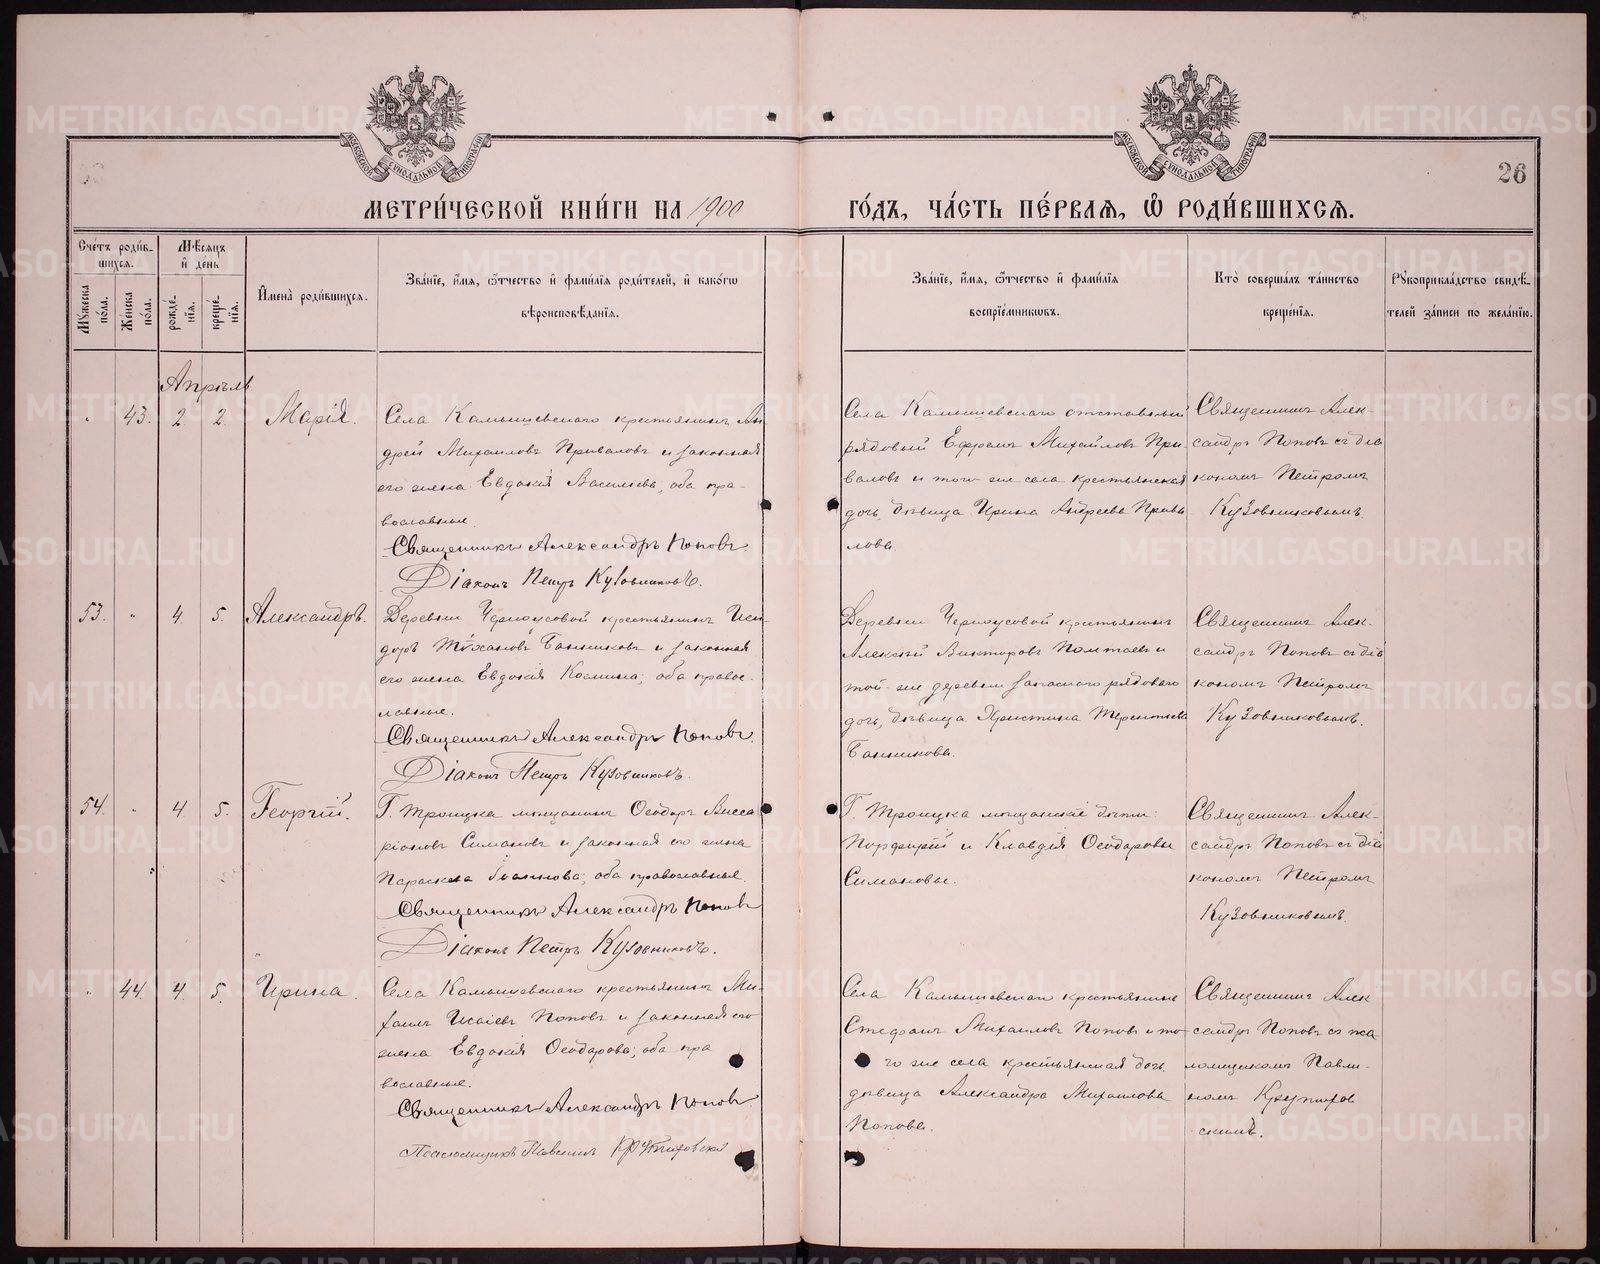 МЕТРИ́ЧЕСКОЙ КНИ́ГИ НА 1900
ГО́ДЪ, ЧА́СТЬ ПЕ́РВАѦ, Ѽ РОДИ́ВШИХСѦ.
26
Сче́тъ роди́в-
шихсѧ.
Мѣ́сѧцъ
и҆ де́нь
Мꙋ́жеска по́ла.
Же́нска по́ла.
рожде́-
нїѧ.
креще́-
нїѧ.
И҆мена̀ роди́вшихсѧ.
Зва́нїе, и҆́мѧ, ѻ҆́тчество и҆ фами́лїѧ роди́телей, и҆ како́гѡ
вѣроисповѣ́данїѧ.
Зва́нїе, и҆́мѧ, ѻ҆́тчество и҆ фами́лїѧ
воспрїе́мникѡвъ.
Кто̀ соверша́лъ та́инство
креще́нїѧ.
Рꙋкоприкла́дство свидѣ́-
телей за́писи по жела́нїю.
Апрѣль
43. 2. 2. Марія.
Села Камышевскаго крестьянинъ Ан
дрей Михаиловъ Приваловъ и законная
его жена Евдокія Васильева, оба пра-
вославные.
Священникъ Александръ Поповъ.
Діаконъ Петръ Кузовниковъ.
Села Камышевскаго отставный
рядовый Ефремъ Михайловъ При-
валовъ и того же села крестьянская
дочь, дѣвица Ирина Андреева Прива
лова.
Священникъ Алек-
сандръ Поповъ съ діа
кономъ Петромъ
Кузовниковымъ.
53. " 4. 5. Александръ.
Деревни Черноусовой крестьянинъ Иси-
доръ Банниковъ и законная
его жена Евдокія Космина, оба правос-
лавные.
Священникъ Александръ Поповъ.
Діаконъ Петръ Кузовниковъ.
Деревни Черноусовой крестьянинъ
Алексѣй Викторовъ и
той-же деревни запаснаго рядоваго
дочь, дѣвица Христина Терентьева
Банникова.
Священникъ Алек-
сандръ Поповъ съ діа
кономъ Петромъ
Кузовниковымъ.
54. " 4. 5. Георгій.
Г. Троицка мѣщанинъ Ѳеодоръ Висса
ріоновъ Симановъ и законная его жена
Параскева оба православные.
Священникъ Александръ Поповъ
Діаконъ Петръ Кузовниковъ.
Г. Троицка мѣщанскіе дѣти:
Порфирій и Клавдія Ѳеодоровы
Симановы.
Священникъ Алек-
сандръ Поповъ съ діа
кономъ Петромъ
Кузовниковымъ.
44. 4. 5. Ирина.
Села Камышевскаго крестьянинъ Ми-
хаилъ Исаіевъ Поповъ и законная его
жена Евдокія Ѳеодорова; оба пра
вославные.
Священникъ Александръ Поповъ
Псаломщикъ Павлинъ
Села Камышевскаго крестьянинъ
Стефанъ Михаиловъ Поповъ и то-
го же села крестьянская дочь,
дѣвица Александра Михаилова
Попова.
Священникъ Алек
сандръ Поповъ съ пса
ломщикомъ Павли-
номъ
скимъ.
METRIKI.GASO-URAL.RU